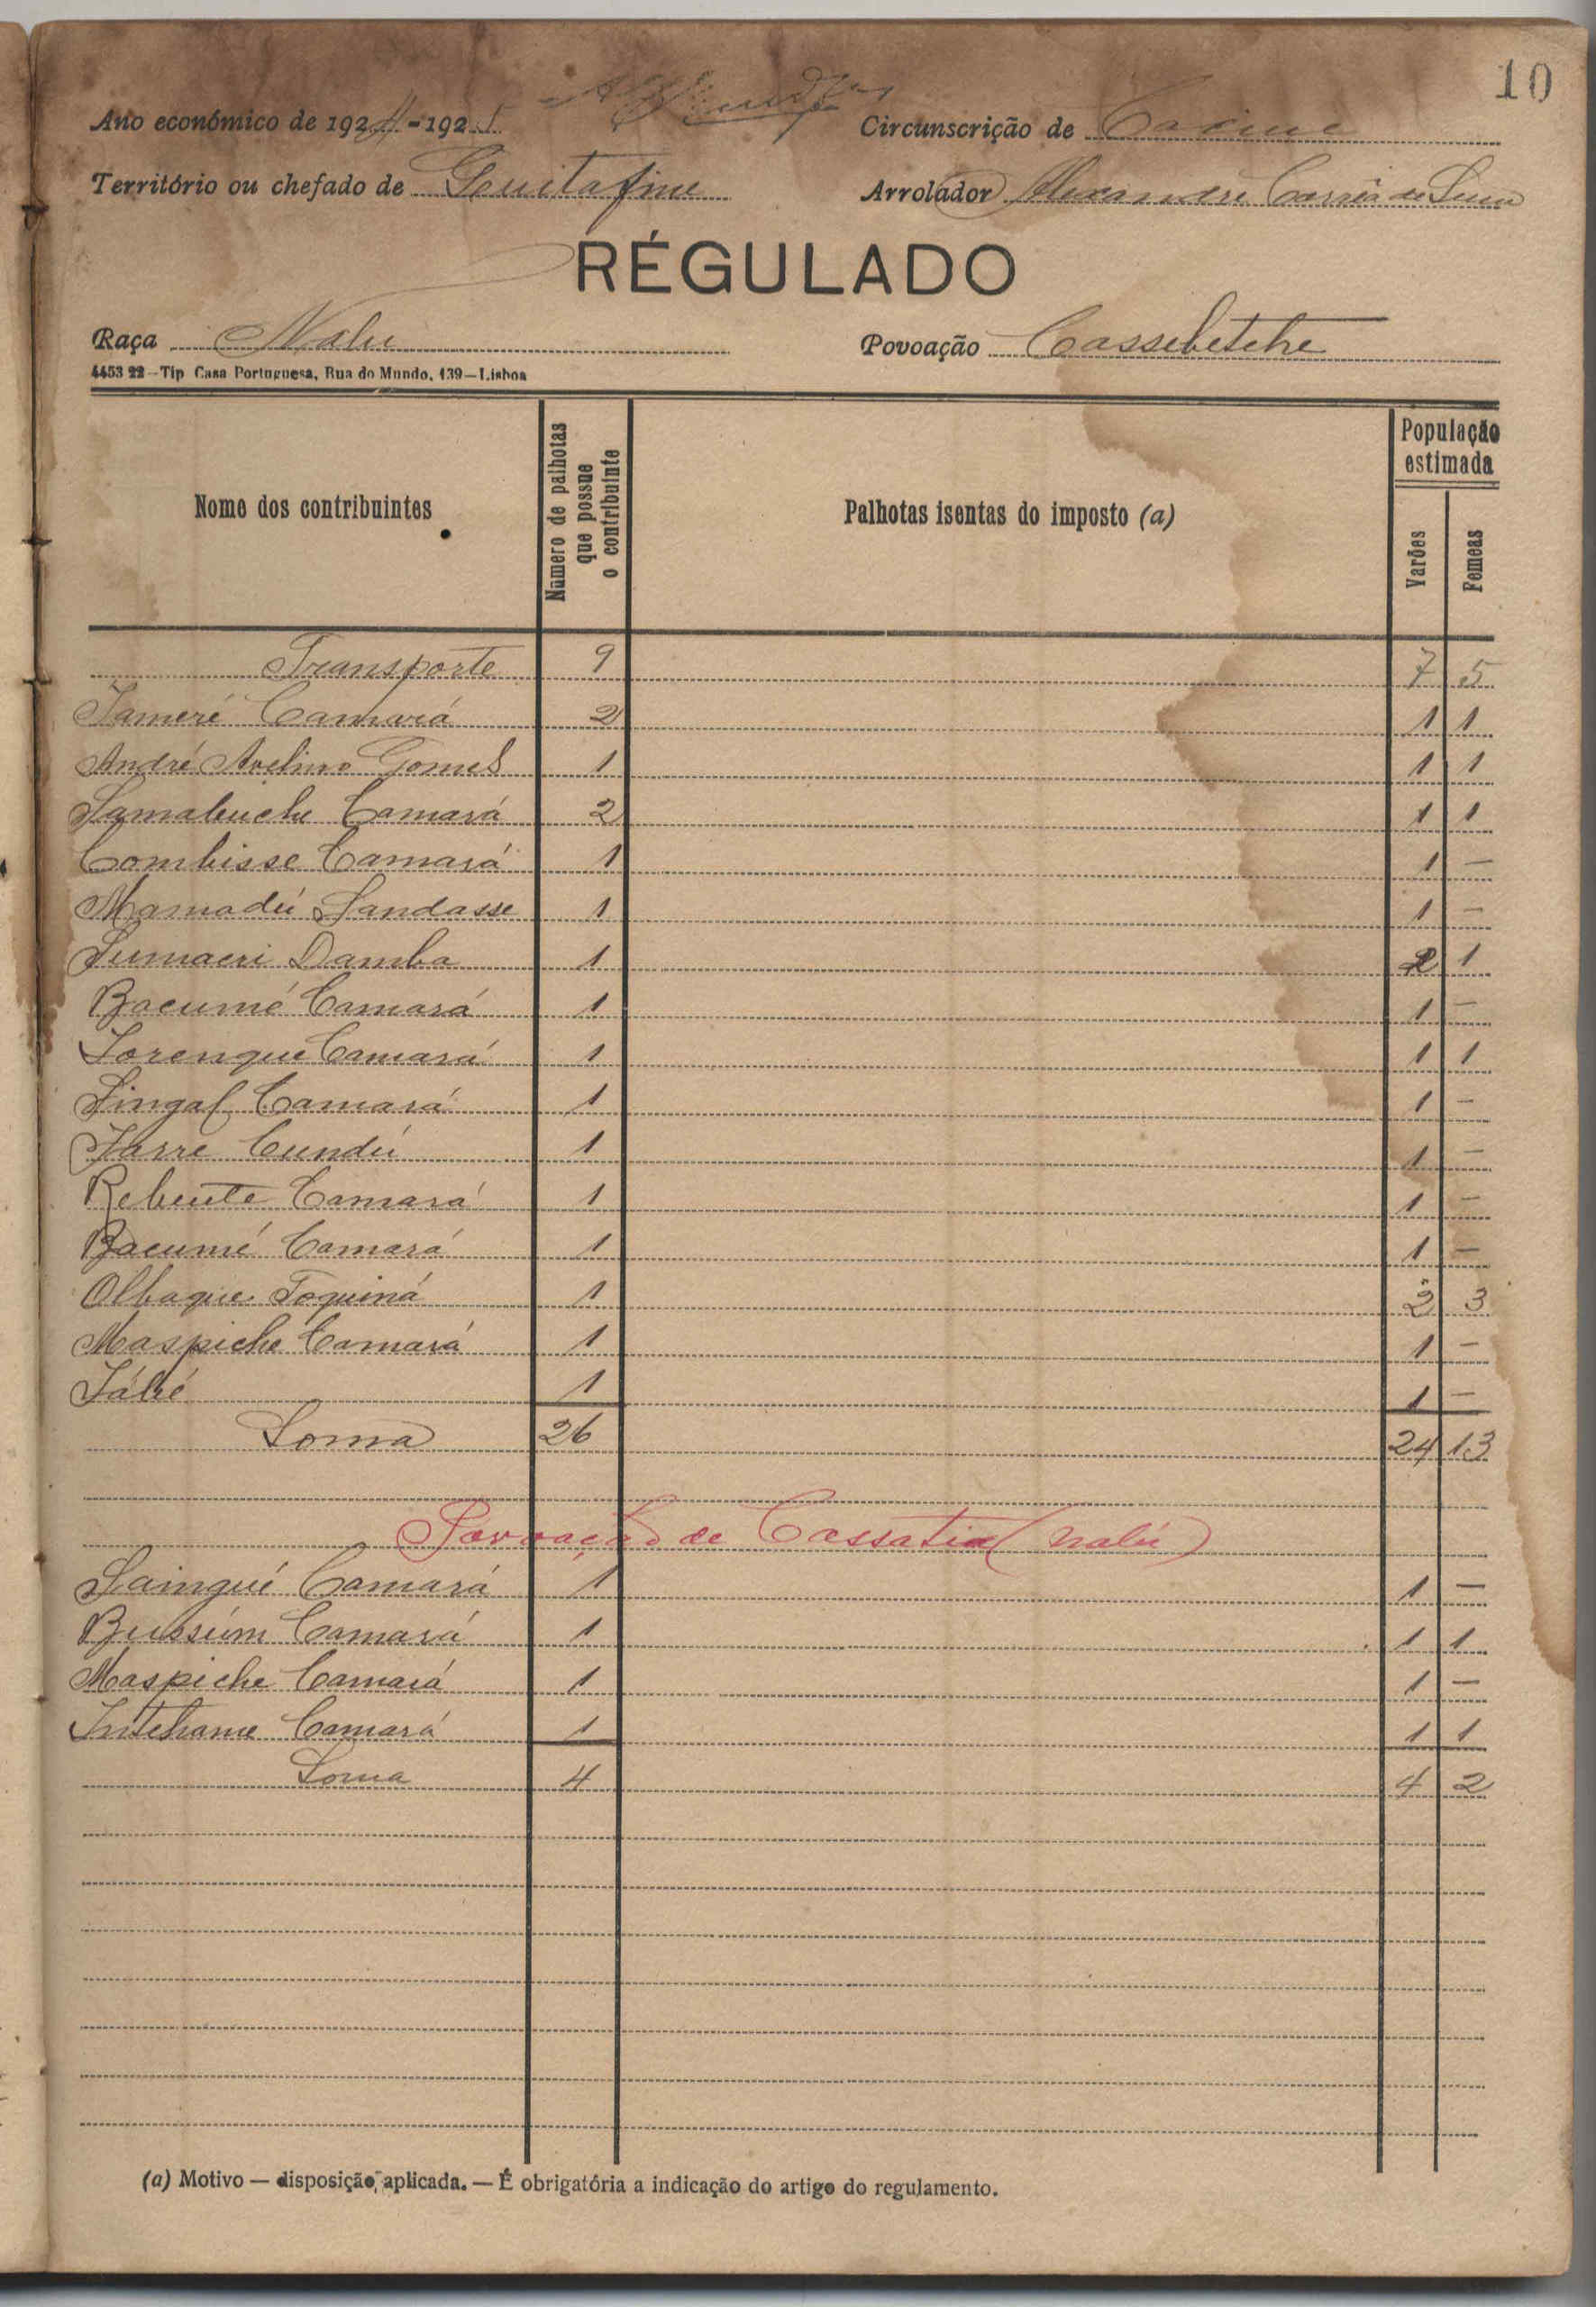 10
Ano económico de 1924-1925 Circunscrição de Cacine
Território ou chefado de Guitafine Arrolador Alexandre Corrêa de
RÉGULADO
Raça Nalu Povoação Cassebetche
4453 22-Tip Casa Portuguesa, Rua do Mundo, 139-Lisboa
Nome dos contribuintes Número de palhotas que possue o contribuinte Palhotas isentas do imposto (a) População estimada Varões Femeas
Transporte 9 7 5
Jameré Camará 2 1 1
André Avelino Gomes 1 1 1
Samabuche Camará 2 1 1
Combisse Camará 1 1 -
Mamadú Sandasse 1 1 -
Sumaeri Damba 1 2 1
Bacumé Camará 1 1 -
Lorenque Camará 1 1 1
Singal Camará 1 1 -
Jarre Cundú 1 1 -
Rebente Camará 1 1 -
Bacumé Camará 1 1 -
Olbaque Toquiná 1 2 3
Maspiche Camará 1 1 -
Jábé 1 1 -
Soma 26 24 13
Povoação de Cassatia (nalú)
Saingué Camará 1 1 -
Bussúm Camará 1 1 1
Maspiche Camará 1 1 -
Intchame Camará 1 1 1
Soma 4 4 2
(a) Motivo — disposição aplicada. — É obrigatória a indicação do artigo do regulamento.